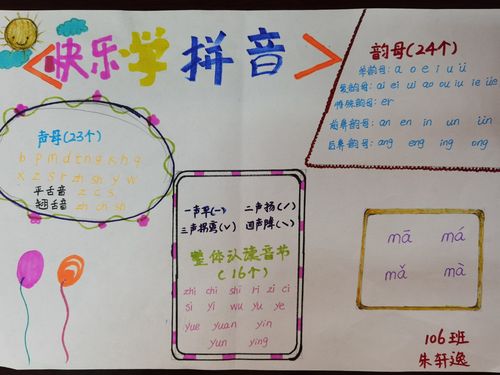 <快乐学拼音>
韵母(24个)
单韵母: a o e i u ü
复韵母: ai ei ui ao ou iu ie üe
特殊韵母: er
前鼻韵母: an en in un ün
后鼻韵母: ang eng ing ong
声母(23个)
b p m d t n g k h g
x z s r zh sh y w
平舌音 z c s
翘舌音 zh ch sh
一声平(一) 二声扬(ˊ)
三声拐弯(ˇ) 四声降(ˋ)
整体认读音节
(16个)
zhi chi shi ri zi ci
si yi wu yu ye
yue yuan yin
yun ying
mā má
mǎ mà
106班
朱轩逸